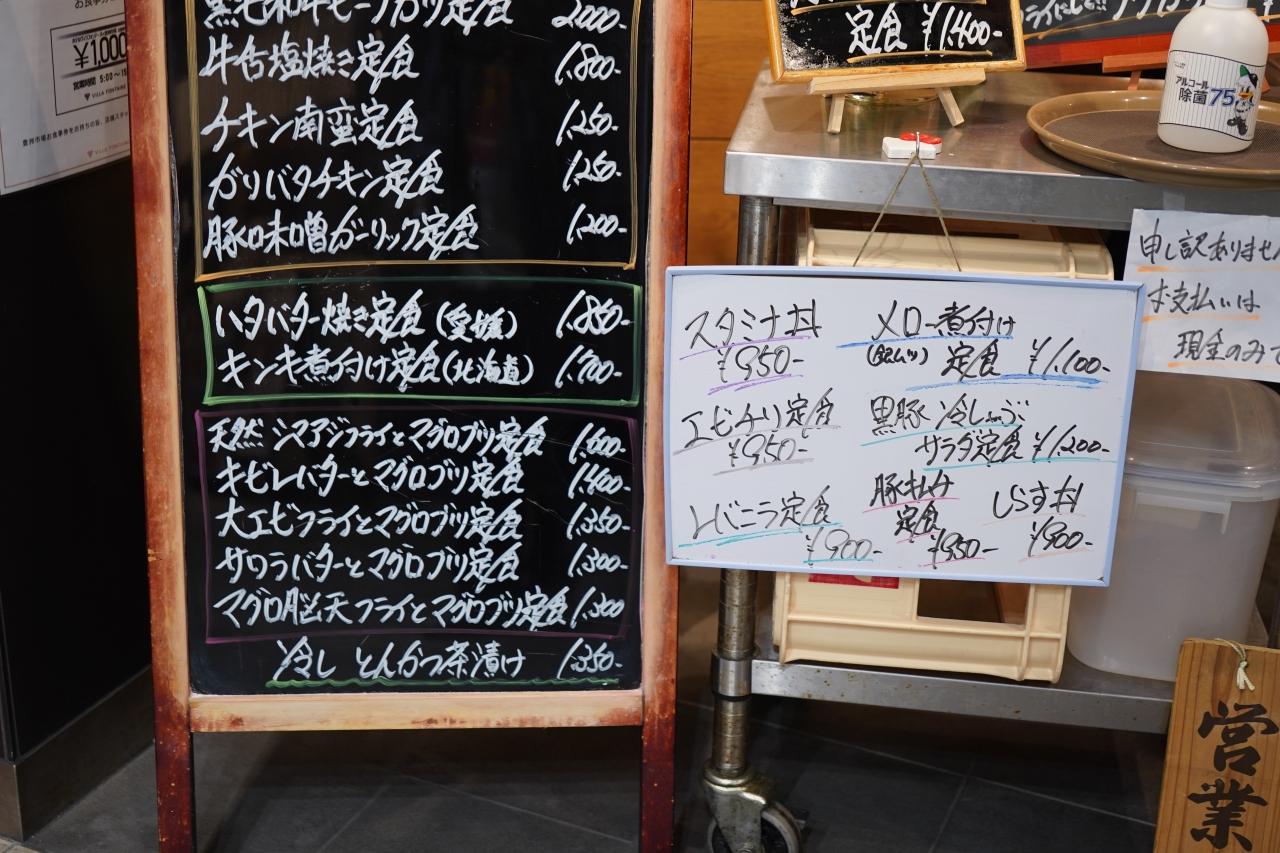 黒毛和牛ビーフカツ定食 2,000-
牛舌塩焼き定食 1,800-
チキン南蛮定食 1,250-
ガリバタチキン定食 1,250-
豚ロ味噌ガーリック定食 1,200-
ハタバター焼き定食(愛媛) 1,850-
キンキ煮付け定食(北海道) 1,700-
天然 シマアジフライとマグロブツ定食 1,600-
キビレバターとマグロブツ定食 1,400-
大エビフライとマグロブツ定食 1,350-
サワラバターとマグロブツ定食 1,300-
マグロ脳天フライとマグロブツ定食 1,300
冷し とんかつ茶漬け 1,350-
スタミナ丼
¥950-
エビチリ定食
¥950-
レバニラ定食
¥900-
メロー煮付け
(銀ムツ) 定食 ¥1,100-
黒豚 冷しゃぶ
サラダ定食 ¥1,200-
豚キムチ
定食
¥950-
しらす丼
¥900-
定食 ¥1,400-
アルコール
除菌75
申し訳ありません
お支払いは
現金のみで
営業
¥1,000
営業時間 5:00〜15
VILLA FONTAINE